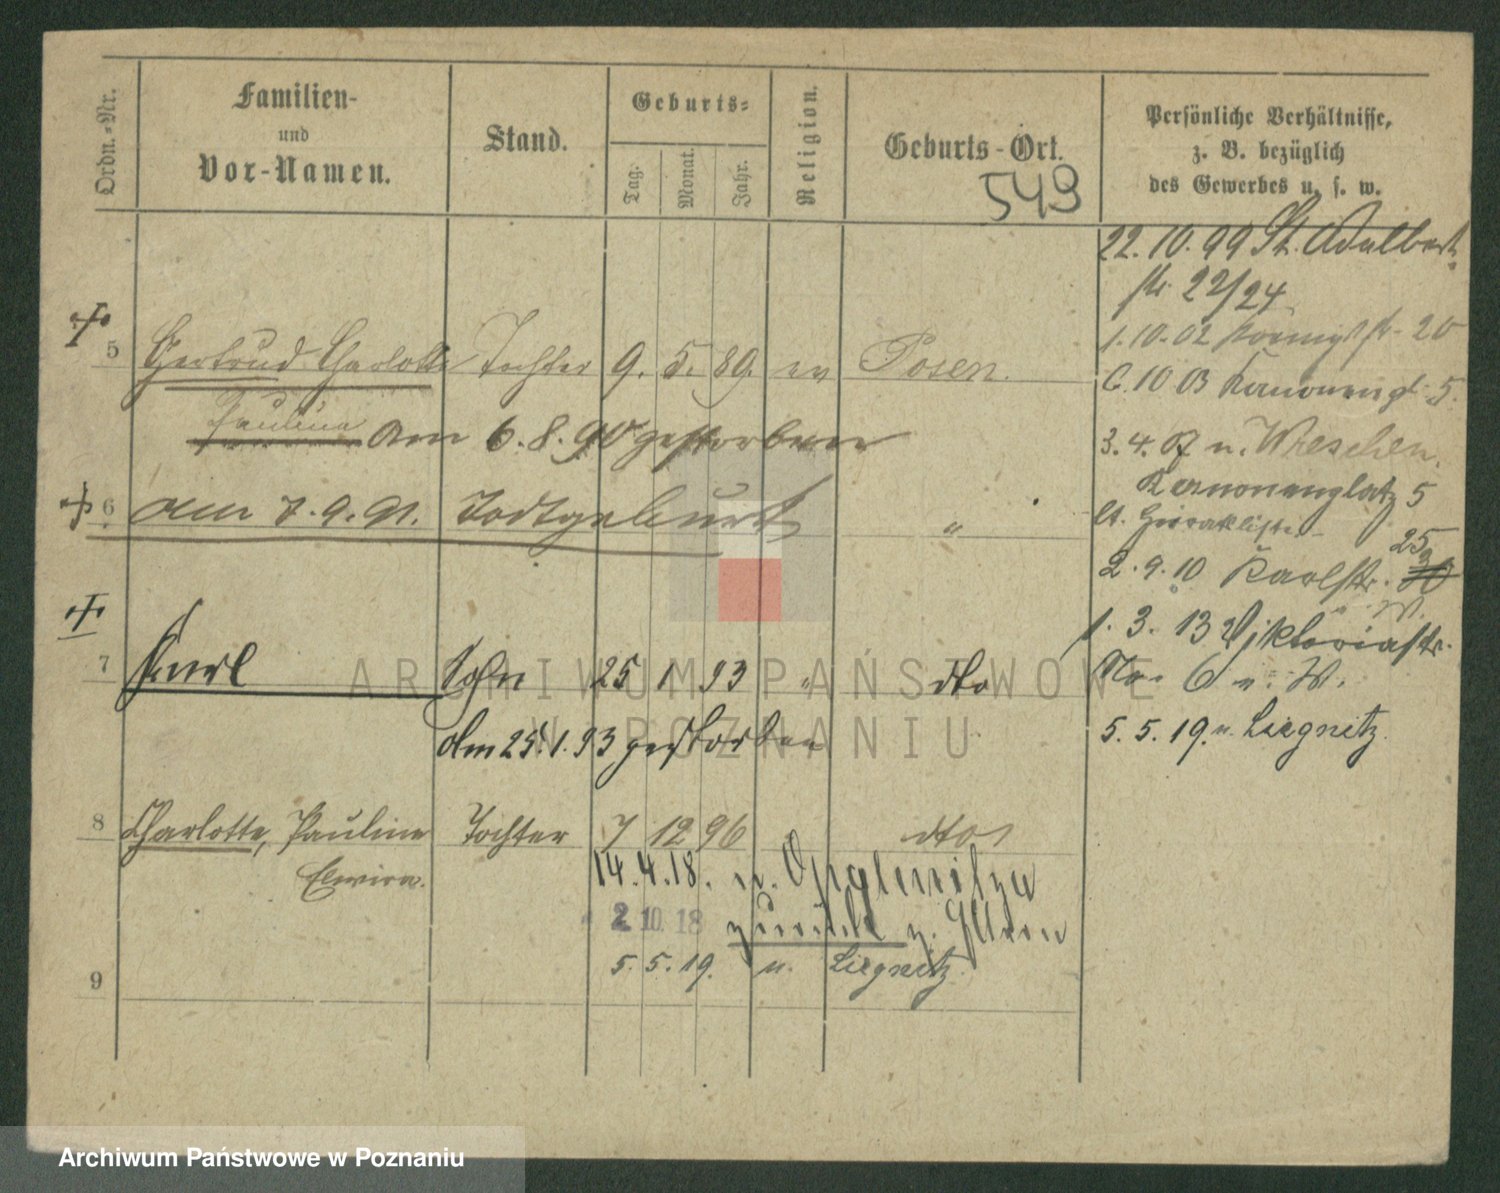 Ordn.-Nr.
Familien-
und
Vor-Namen.
Stand.
Geburts-
Tag.
Monat.
Jahr.
Religion.
Geburts-Ort.
549
Persönliche Verhältnisse,
z. B. bezüglich
des Gewerbes u. s. w.
22.10.99 St. Adalbert
str. 22/24
1.10.02 Königstr. 20
5 Gertrud Charlotte Tochter 9. 5. 89. ev Posen.
6.10 03 Kanonenpl. 5.
Paulina am 6.8.90 gestorben
3.4. n. Wreschen.
Kanonenplatz 5
6 am 7.9.91. Todtgeburt "
2.9.10 Karlstr. 25
1.3.13 Viktoriastr.
No. 6 v. W.
7 Karl Sohn 25 1 93 " dto
am 25.1.93 gestorben
5.5.19. n. Liegnitz.
8 Charlotte, Pauline Tochter 7 12 96 dto
Elwira.
14.4.18. n.
2 10. 18 zurück v.
5.5.19. n. Liegnitz.
9
ARCHIWUM PAŃSTWOWE
W POZNANIU
Archiwum Państwowe w Poznaniu